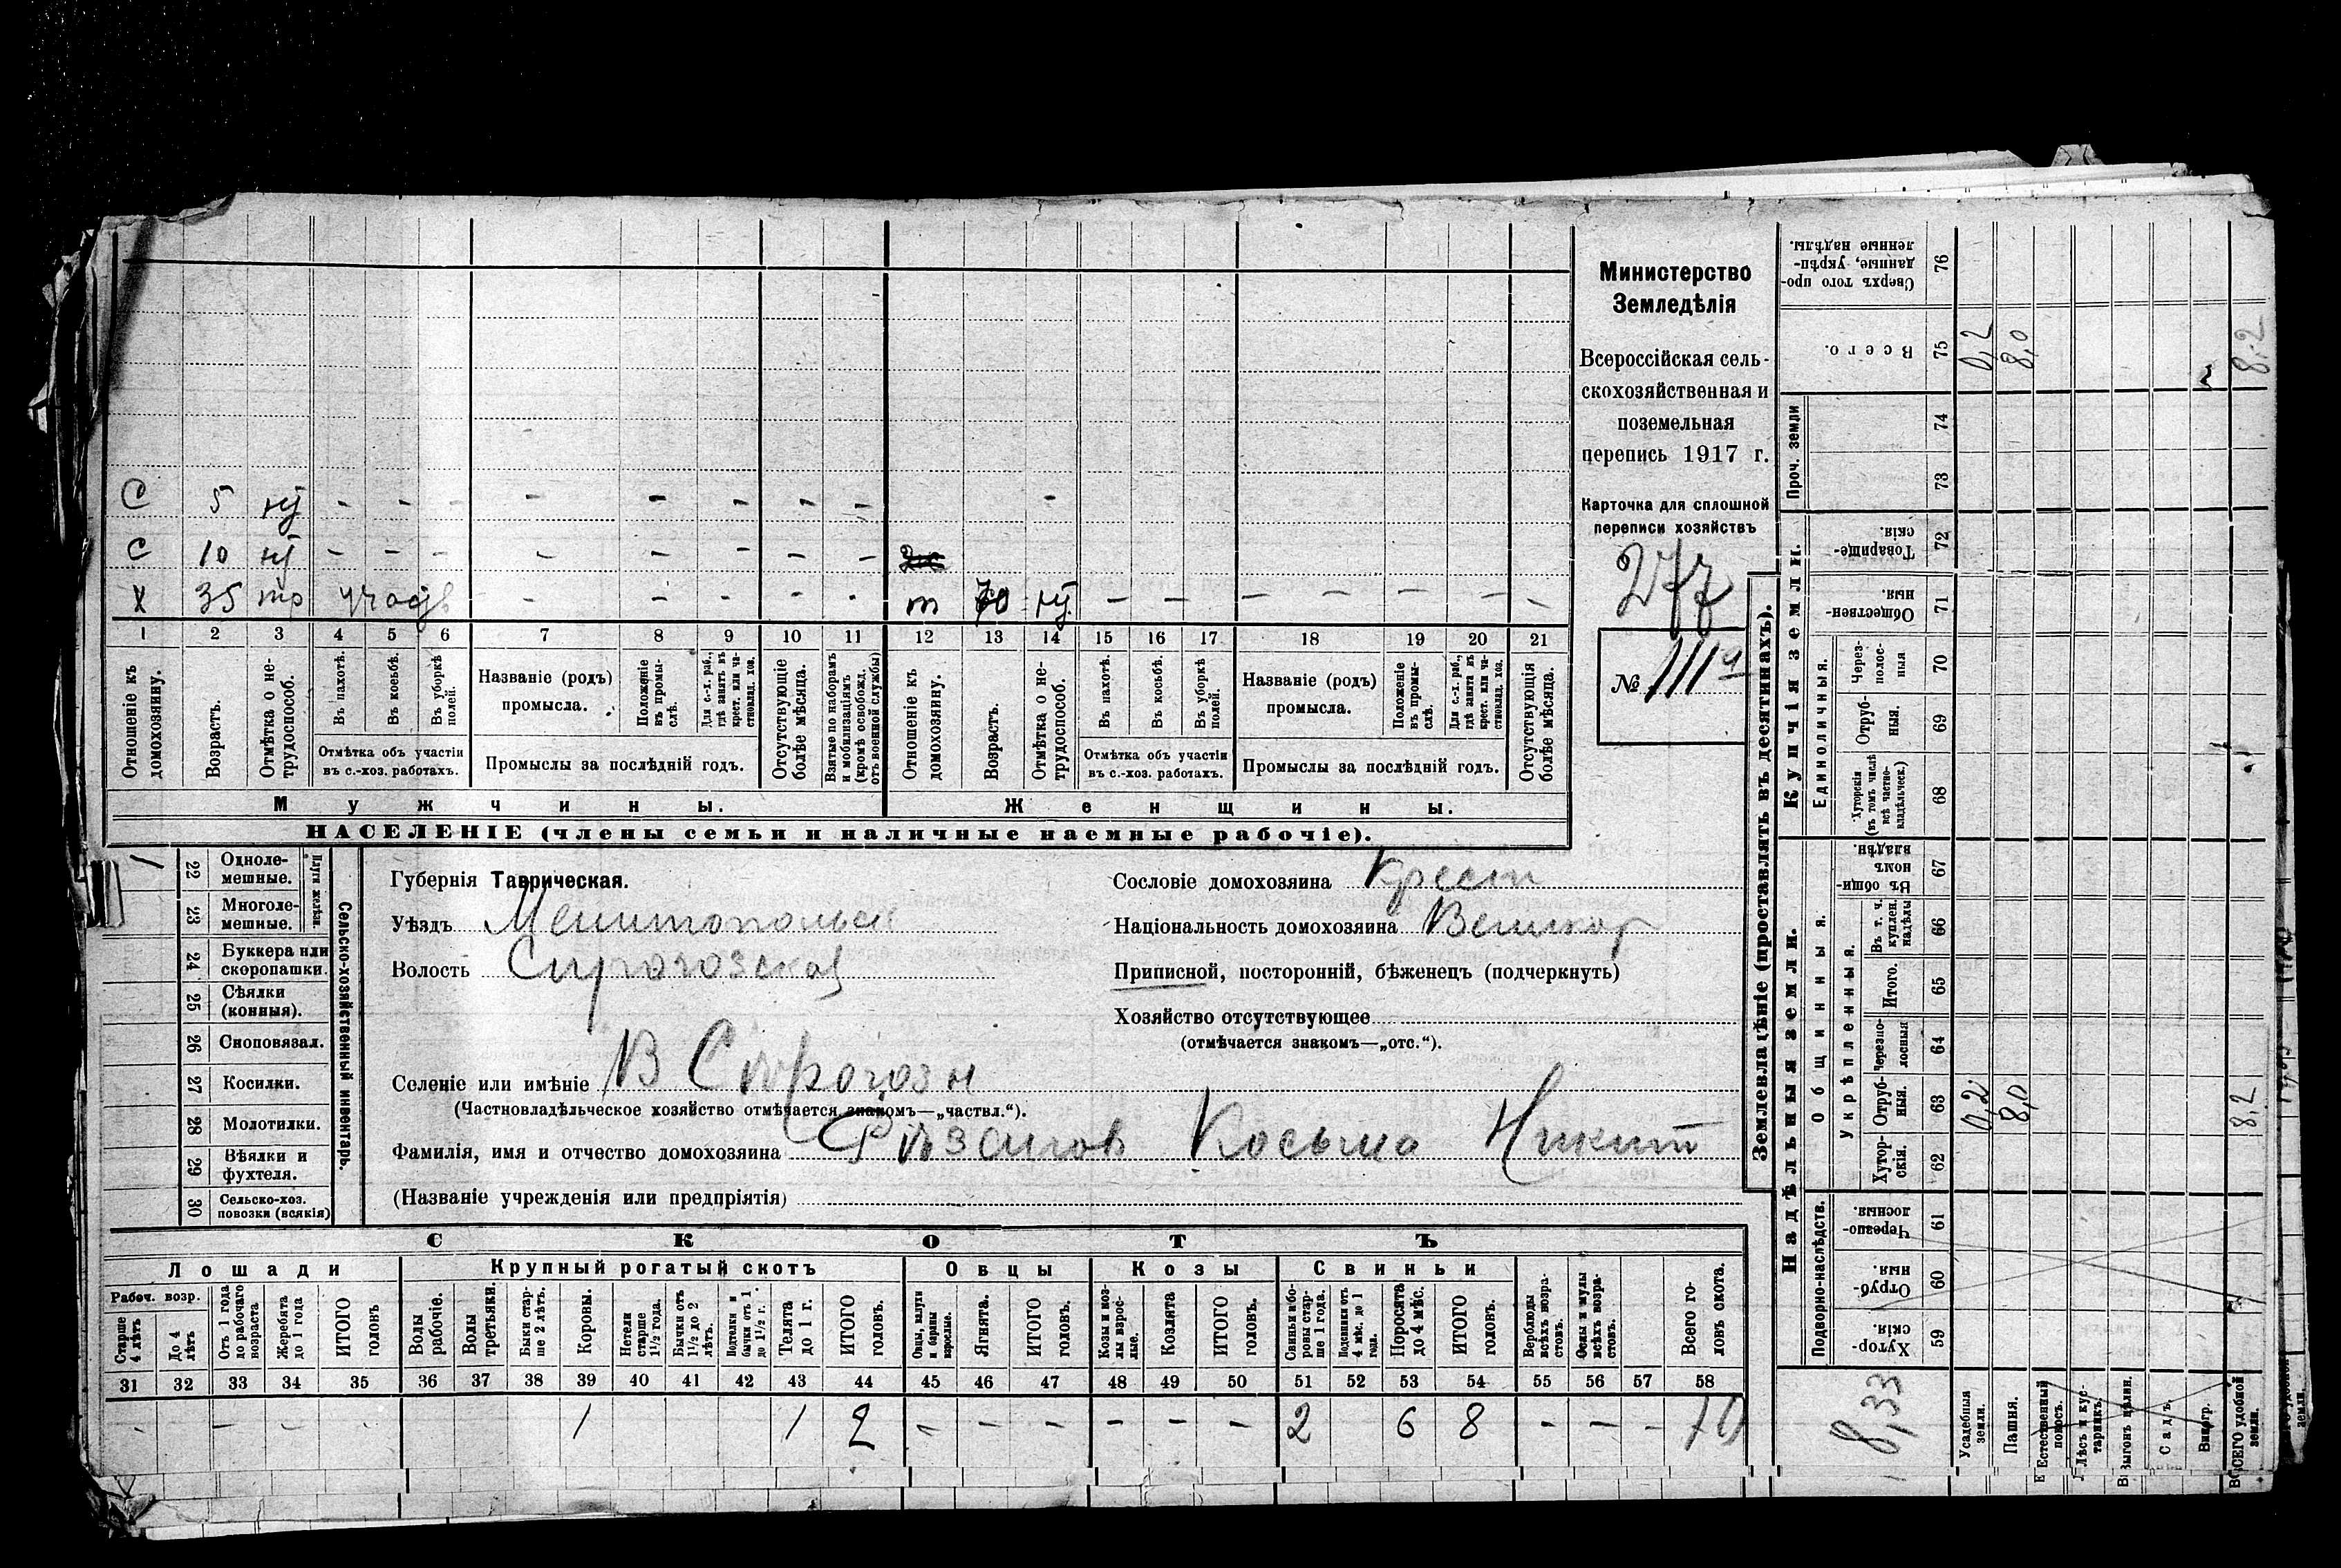 Министерство
Земледѣлія
Всероссійская сель-
скохозяйственная и
поземельная
перепись 1917 г.
Карточка для сплошной
переписи хозяйствъ
277
№ 111а
С 5 - - - - - - - - -
С 10 - - - - - - - -
Х 35 - - - - - т 70 - - - - - - -
1 2 3 4 5 6 7 8 9 10 11 12 13 14 15 16 17 18 19 20 21
Отношеніе къ домохозяину.
Возрастъ.
Отмѣтка о не-трудоспособ.
Въ пахотѣ.
Въ косьбѣ.
Въ уборкѣ полей.
Отмѣтка объ участіи
въ с.-хоз. работахъ.
Названіе (родъ)
промысла.
Положеніе въ промы-слѣ.
Для с.-х. раб., гдѣ занятъ въ крест. или ча-стновлад. хоз.
Промыслы за послѣдній годъ.
Отсутствующіе болѣе мѣсяца.
Взятые по наборамъ и мобилизаціямъ (кромѣ освобожд. отъ военной службы)
Отношеніе къ домохозяину.
Возрастъ.
Отмѣтка о не-трудоспособ.
Въ пахотѣ.
Въ косьбѣ.
Въ уборкѣ полей.
Отмѣтка объ участіи
въ с.-хоз. работахъ.
Названіе (родъ)
промысла.
Положеніе въ промы-слѣ.
Для с.-х. раб., гдѣ занята въ крест. или ча-стновлад. хоз.
Промыслы за послѣдній годъ.
Отсутствующія болѣе мѣсяца.
Мужчины. Женщины.
НАСЕЛЕНІЕ (члены семьи и наличные наемные рабочіе).
22 Одноле-мешные. 1
23 Многоле-мешные.
Плуги желѣзн.
24 Буккера или скоропашки.
25 Сѣялки (конныя).
26 Сноповязал.
27 Косилки.
28 Молотилки.
29 Вѣялки и фухтеля.
30 Сельско-хоз. повозки (всякія)
Сельско-хозяйственный инвентарь.
Губернія Таврическая.
Уѣздъ Мелитопольск
Волость Сирогозская
Селеніе или имѣніе В Сѣрогозы
(Частновладѣльческое хозяйство отмѣчается знакомъ—„частвл.“).
Фамилія, имя и отчество домохозяина Косьма Никит
(Названіе учрежденія или предпріятія)
Сословіе домохозяина Крест
Національность домохозяина Великор
Приписной, посторонній, бѣженецъ (подчеркнуть)
Хозяйство отсутствующее
(отмѣчается знакомъ—„отс.“).
СКОТЪ
Лошади Крупный рогатый скотъ Овцы Козы Свиньи
Рабоч. возр.
Старше 4 лѣтъ
До 4 лѣтъ
Отъ 1 года до рабочаго возраста
Жеребята до 1 года
ИТОГО головъ
Волы рабочіе.
Волы третьяки.
Быки стар-ше 2 лѣтъ.
Коровы.
Нетели старше 1½ года.
Бычки отъ 1½ до 2 лѣтъ.
Подтелки и бычки отъ 1 до 1½ г.
Телята до 1 г.
ИТОГО головъ.
Овцы, валухи и бараны взрослые.
Ягнята.
ИТОГО головъ.
Козы и коз-лы взрос-лые.
Козлята
ИТОГО головъ.
Свиньи и бо-ровы стар-ше 1 года.
Подсвинки отъ 4 мѣс. до 1 года.
Поросята до 4 мѣс.
ИТОГО головъ.
Верблюды всѣхъ возра-стовъ.
Ослы и мулы всѣхъ возра-стовъ.
Всего го-ловъ скота.
31 32 33 34 35 36 37 38 39 40 41 42 43 44 45 46 47 48 49 50 51 52 53 54 55 56 57 58
- - - - 1 1 2 - - - - - - 2 6 8 - - - 10
Землевладѣніе (проставлять въ десятинахъ).
Купчія земли.
Надѣльныя земли.
Сверхъ того про-данные, укрѣп-ленные надѣлы. 76
Всего. 75 0,2 8,0 8,2
Проч. земли 74 73
Товарище-скія. 72
Обществен-ныя. 71
Единоличныя.
Через-полос-ныя 70
Отруб-ныя. 69
Хуторскія (въ томъ числѣ всѣ частно-владѣльческ.) 68
Общинныя.
Въ общин-номъ владѣн. 67
Укрѣпленныя.
Въ т. ч. куплен. надѣлы 66
Итого. 65
Черезпо-лосныя 64
Отруб-ныя. 63 0,2 8,0 8,2
Хутор-скія. 62
Подворно-наслѣдств.
Черезпо-лосныя. 61
Отруб-ныя. 60
Хутор-скія. 59
8,33
Усадебныя земли.
Пашня.
Естественный покосъ.
Лѣсъ и кус-тарникъ.
Выгонъ цѣлин.
Садъ.
Виногр.
ВСЕГО удобной земли.